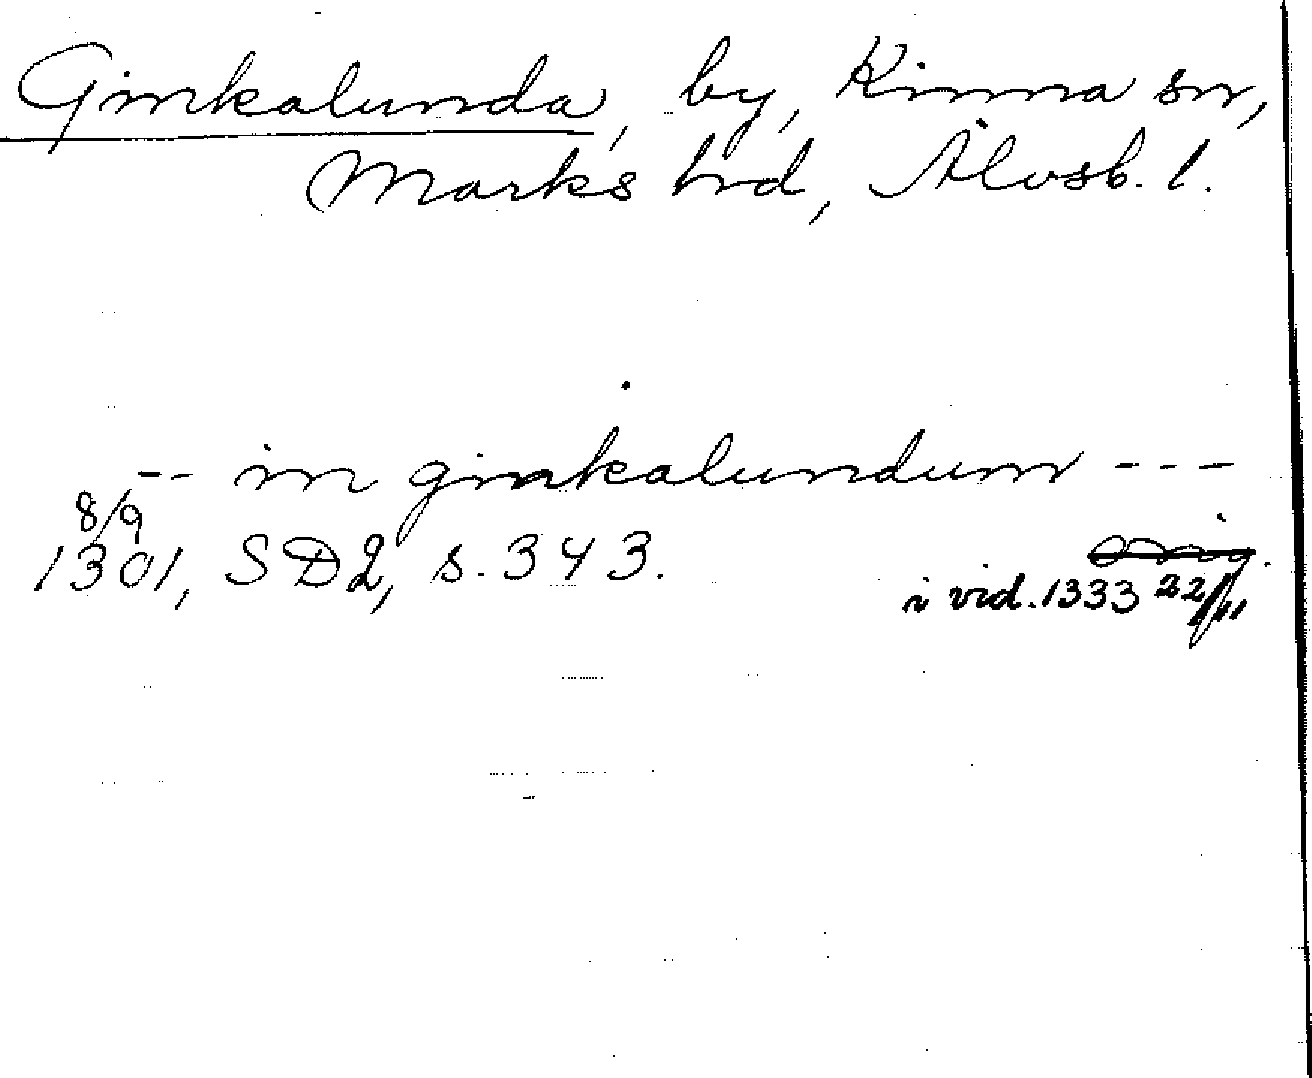 Ginkalunda, by, Kinna sn,
Marks hd, Älvsb. l.
-- in ginkalundum ---
8/9
1301, SD2, s. 343.
orig.
i vid. 1333 22/11